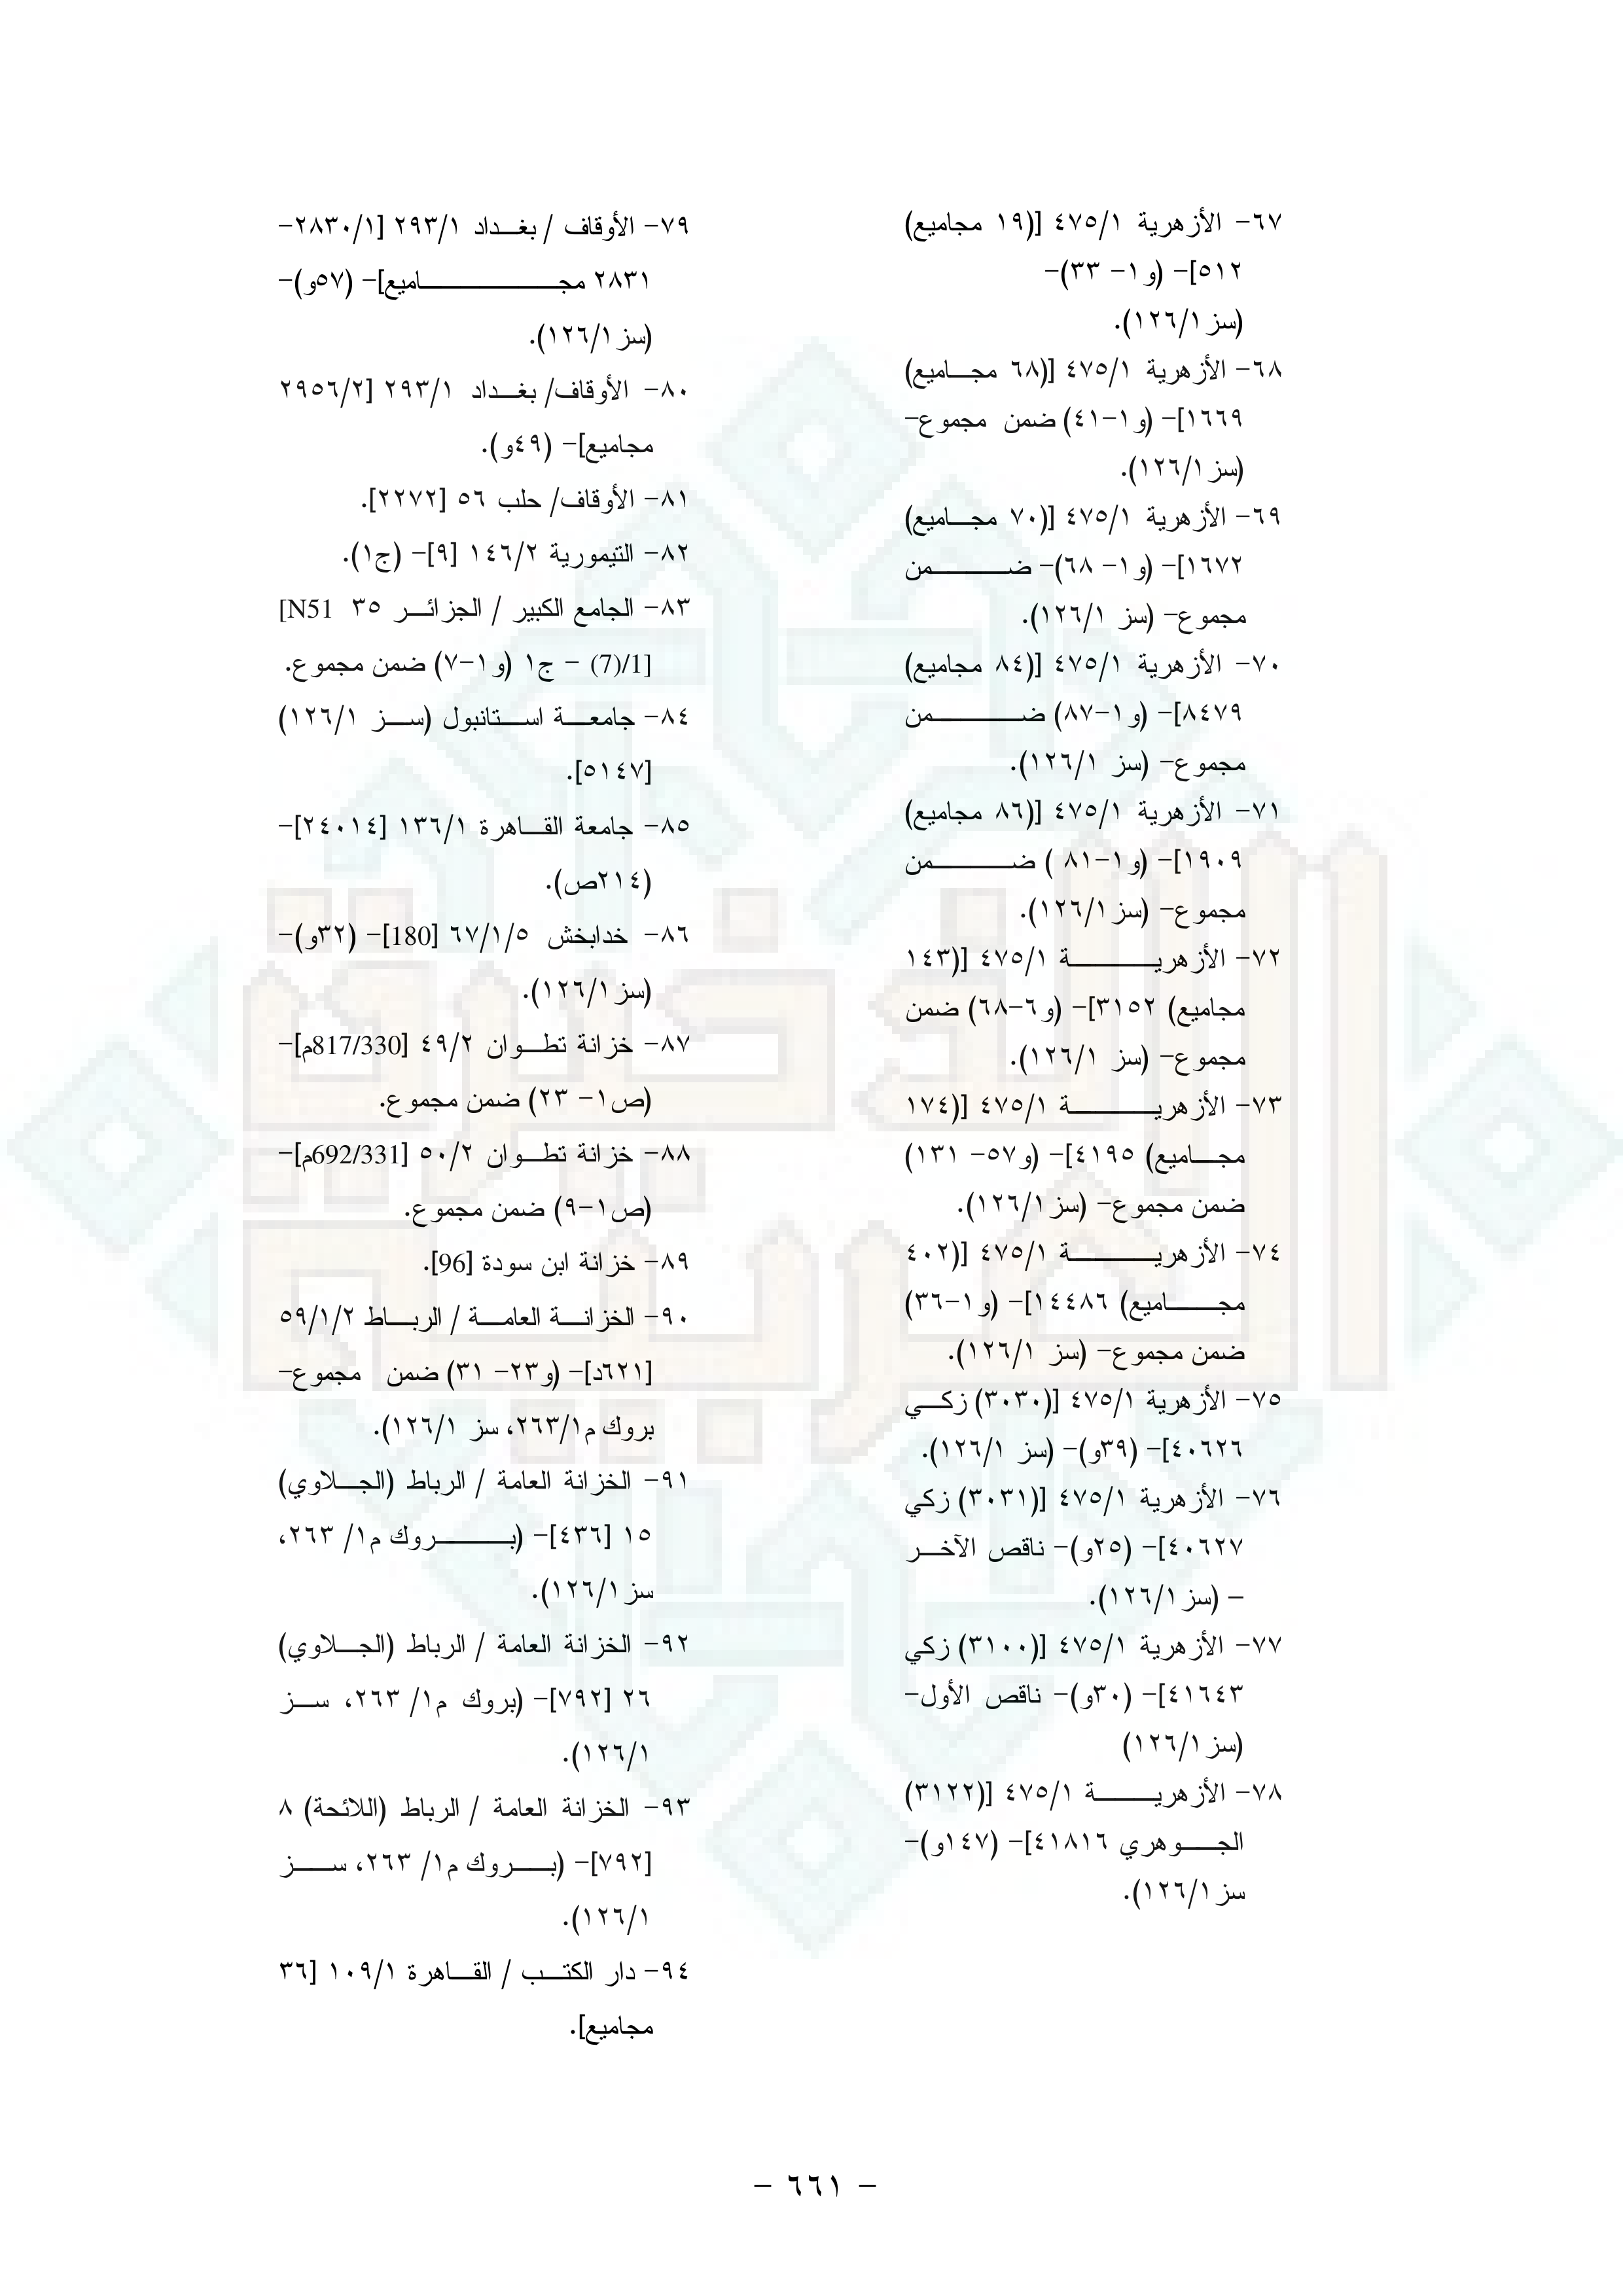 ٦٧- الأزهرية ٤٧٥/١ [(١٩ مجاميع)
٥١٢]- (و١- ٣٣)-
(سز١٢٦/١).
٦٨- الأزهرية ٤٧٥/١ [(٦٨ مجاميع)
١٦٦٩]- (و١-٤١) ضمن مجموع-
(سز١٢٦/١).
٦٩- الأزهرية ٤٧٥/١ [(٧٠ مجاميع)
١٦٧٢]- (و١- ٦٨)- ضمن
مجموع- (سز ١٢٦/١).
٧٠- الأزهرية ٤٧٥/١ [(٨٤ مجاميع)
٨٤٧٩]- (و١-٨٧) ضمن
مجموع- (سز ١٢٦/١).
٧١- الأزهرية ٤٧٥/١ [(٨٦ مجاميع)
١٩٠٩]- (و١-٨١ ) ضمن
مجموع- (سز١٢٦/١).
٧٢- الأزهرية ٤٧٥/١ [(١٤٣
مجاميع) ٣١٥٢]- (و٦-٦٨) ضمن
مجموع- (سز ١٢٦/١).
٧٣- الأزهرية ٤٧٥/١ [(١٧٤
مجاميع) ٤١٩٥]- (و٥٧- ١٣١)
ضمن مجموع- (سز١٢٦/١).
٧٤- الأزهرية ٤٧٥/١ [(٤٠٢
مجاميع) ١٤٤٨٦]- (و١-٣٦)
ضمن مجموع- (سز ١٢٦/١).
٧٥- الأزهرية ٤٧٥/١ [(٣٠٣٠) زكي
٤٠٦٢٦]- (٣٩و)- (سز ١٢٦/١).
٧٦- الأزهرية ٤٧٥/١ [(٣٠٣١) زكي
٤٠٦٢٧]- (٢٥و)- ناقص الآخر
- (سز١٢٦/١).
٧٧- الأزهرية ٤٧٥/١ [(٣١٠٠) زكي
٤١٦٤٣]- (٣٠و)- ناقص الأول-
(سز١٢٦/١)
٧٨- الأزهرية ٤٧٥/١ [(٣١٢٢)
الجوهري ٤١٨١٦]- (١٤٧و)-
سز١٢٦/١).
٧٩- الأوقاف / بغداد ٢٩٣/١ [٢٨٣٠/١-
٢٨٣١ مجاميع]- (٥٧و)-
(سز١٢٦/١).
٨٠- الأوقاف/ بغداد ٢٩٣/١ [٢٩٥٦/٢
مجاميع]- (٤٩و).
٨١- الأوقاف/ حلب ٥٦ [٢٢٧٢].
٨٢- التيمورية ١٤٦/٢ [٩]- (ج١).
٨٣- الجامع الكبير / الجزائر ٣٥ [N51
(7)/1] - ج١ (و١-٧) ضمن مجموع.
٨٤- جامعة استانبول (سز ١٢٦/١)
[٥١٤٧].
٨٥- جامعة القاهرة ١٣٦/١ [٢٤٠١٤]-
(٢١٤ص).
٨٦- خدابخش ٦٧/١/٥ [180]- (٣٢و)-
(سز١٢٦/١).
٨٧- خزانة تطوان ٤٩/٢ [817/330م]-
(ص١- ٢٣) ضمن مجموع.
٨٨- خزانة تطوان ٥٠/٢ [692/331م]-
(ص١-٩) ضمن مجموع.
٨٩- خزانة ابن سودة [96].
٩٠- الخزانة العامة / الرباط ٥٩/١/٢
[٦٢١د]- (و٢٣- ٣١) ضمن مجموع-
بروك م٢٦٣/١، سز ١٢٦/١).
٩١- الخزانة العامة / الرباط (الجلاوي)
١٥ [٤٣٦]- (بروك م١/ ٢٦٣،
سز١٢٦/١).
٩٢- الخزانة العامة / الرباط (الجلاوي)
٢٦ [٧٩٢]- (بروك م١/ ٢٦٣، سز
١٢٦/١).
٩٣- الخزانة العامة / الرباط (اللائحة) ٨
[٧٩٢]- (بروك م١/ ٢٦٣، سز
١٢٦/١).
٩٤- دار الكتب / القاهرة ١٠٩/١ [٣٦
مجاميع].
- ٦٦١ -